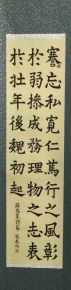 忘私寬仁篤行之風彰
於弱操成務理物之志表
於壯年後魏初起